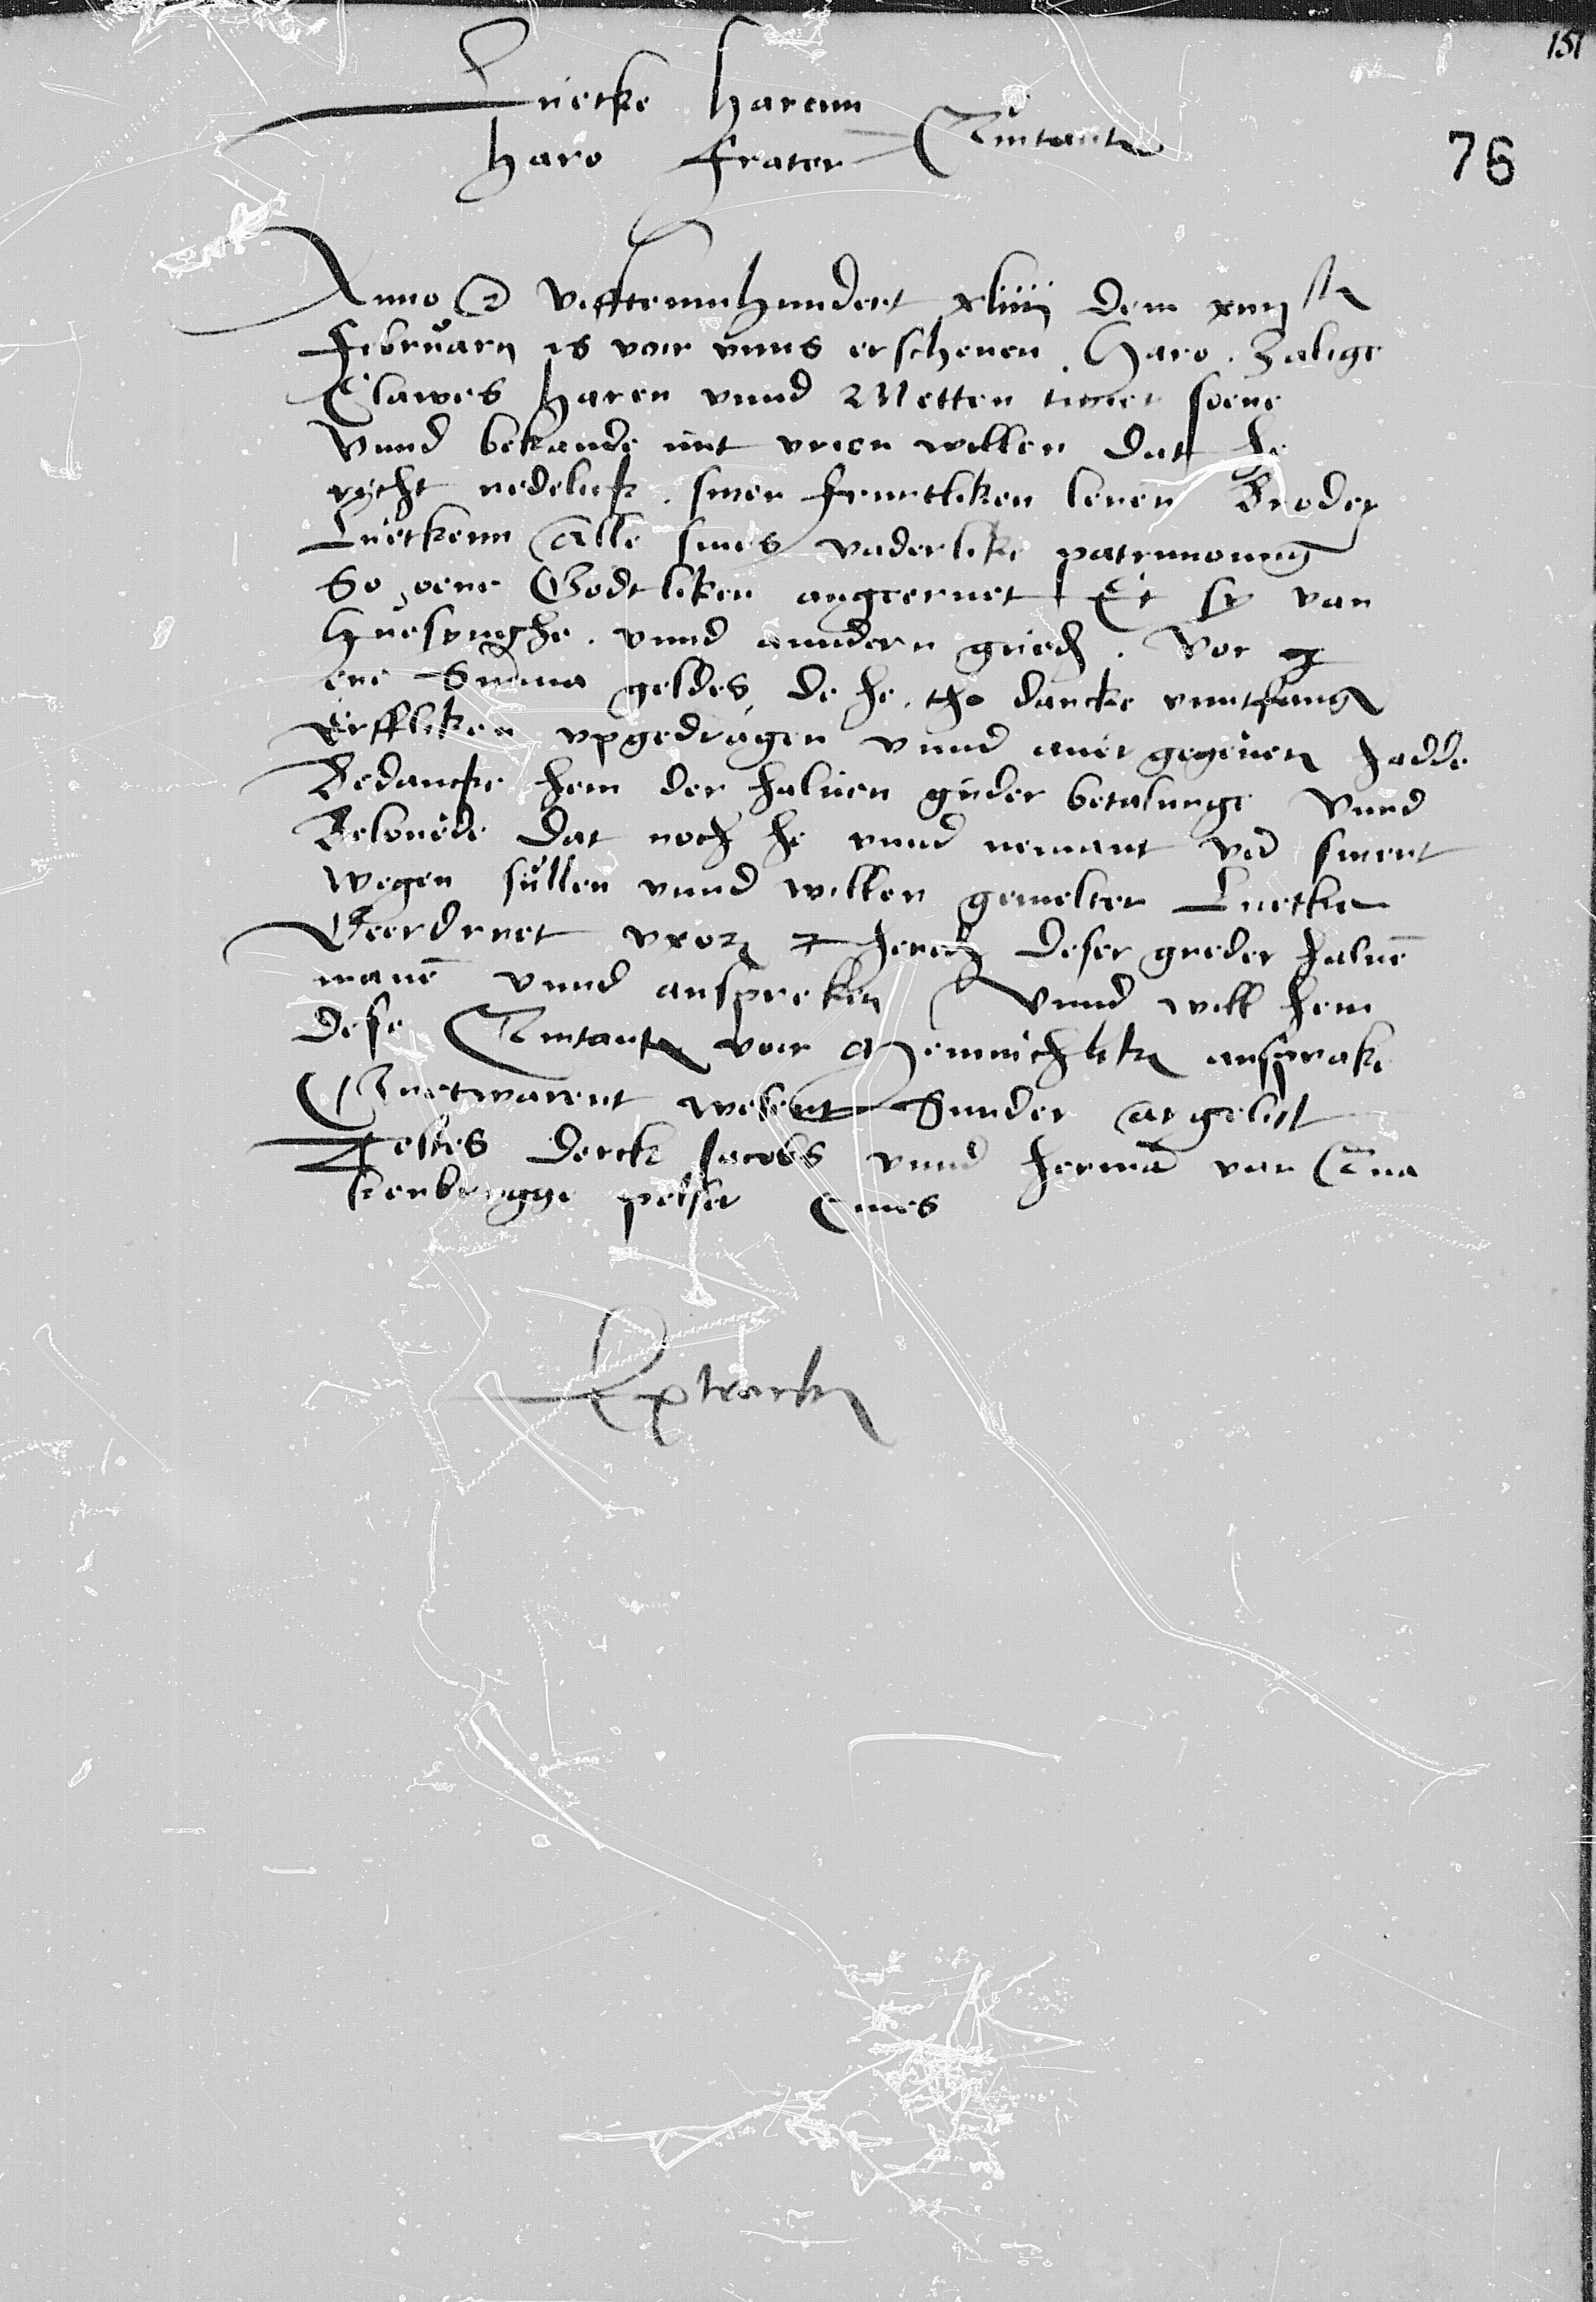 151
Luetke Harenn
Haro frater Quitantz
76
Anno etc vefftennhundert xliiij dem xviij stn
februarij is voer vnns erschenen Haro. Zalige
Clawes Haren vnnd Metten soene
Vnnd bekande mit vrien willen dat he
recht redelick. sinen fruntliken leuen Broder
Luetkenn Alle sines vaderlike patrimonij
So oene Godtliken angeeruet Et sy van
Huesynghe. vnnd anndern guedern. Vor
ene Summa geldes, de he. tho dancke vnntfangen
Erffliken vpgedragen vnnd auer gegeuen hadde
Bedancke hem der haluen guder betalunge Vnnd
Belouede dat noch he vnnd nemant van sinent
wegen sullen vnnd willen gemelten Luetken
Geerdruet vxor et hered deser gueder haluen
manen vnnd anspreken Vnnd will hem
Dese Quitantz voer Mennichliken ansprake
Guetwarent wesent Sunder argelist
Testes Derck Jacobs vnnd Herman van Qua
kenbrugge pelser Ciues
Extractum